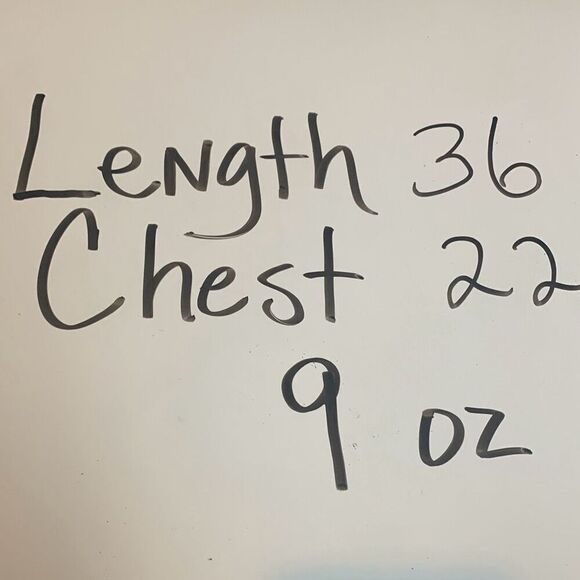 Length 36
Chest 22
9 oz